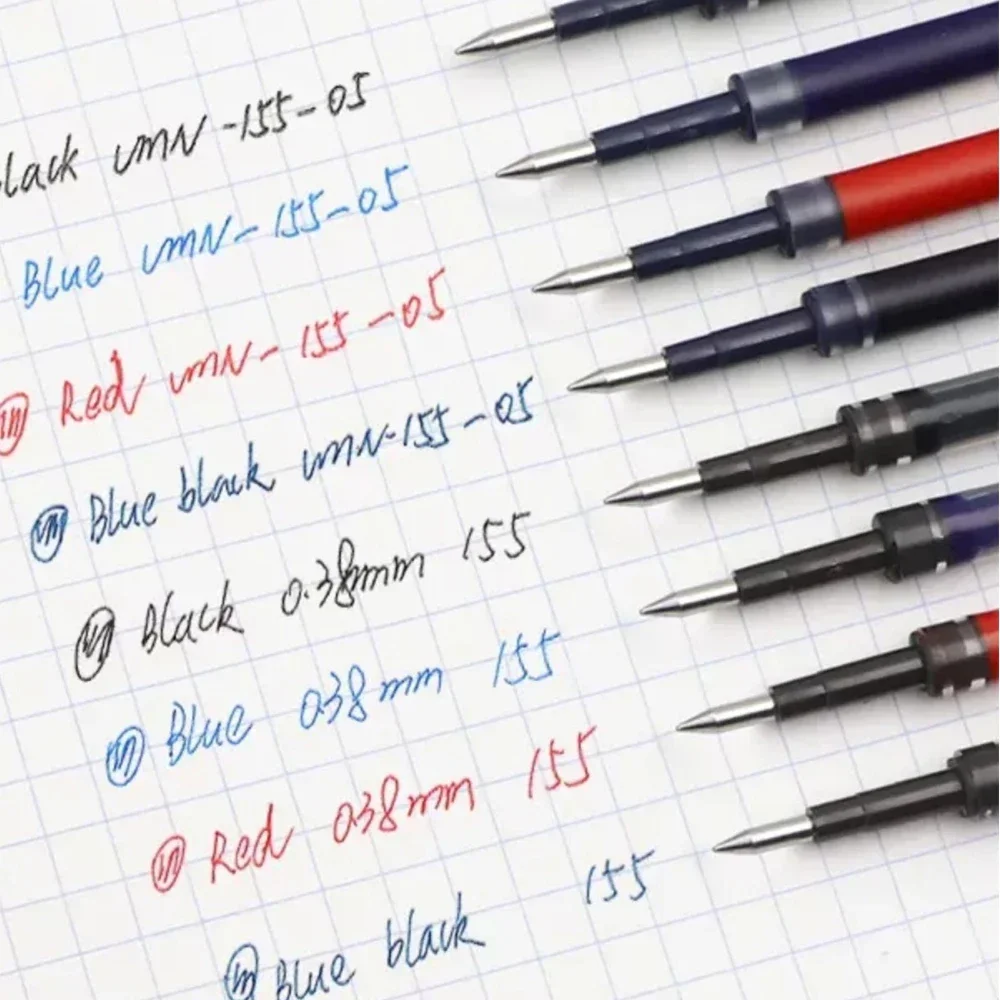 lack UMN-155-05
Blue UMN-155-05
Red UMN-155-05
Blue black UMN-155-05
Black 0.38mm 155
Blue 038mm 155
Red 038mm 155
Blue black 155